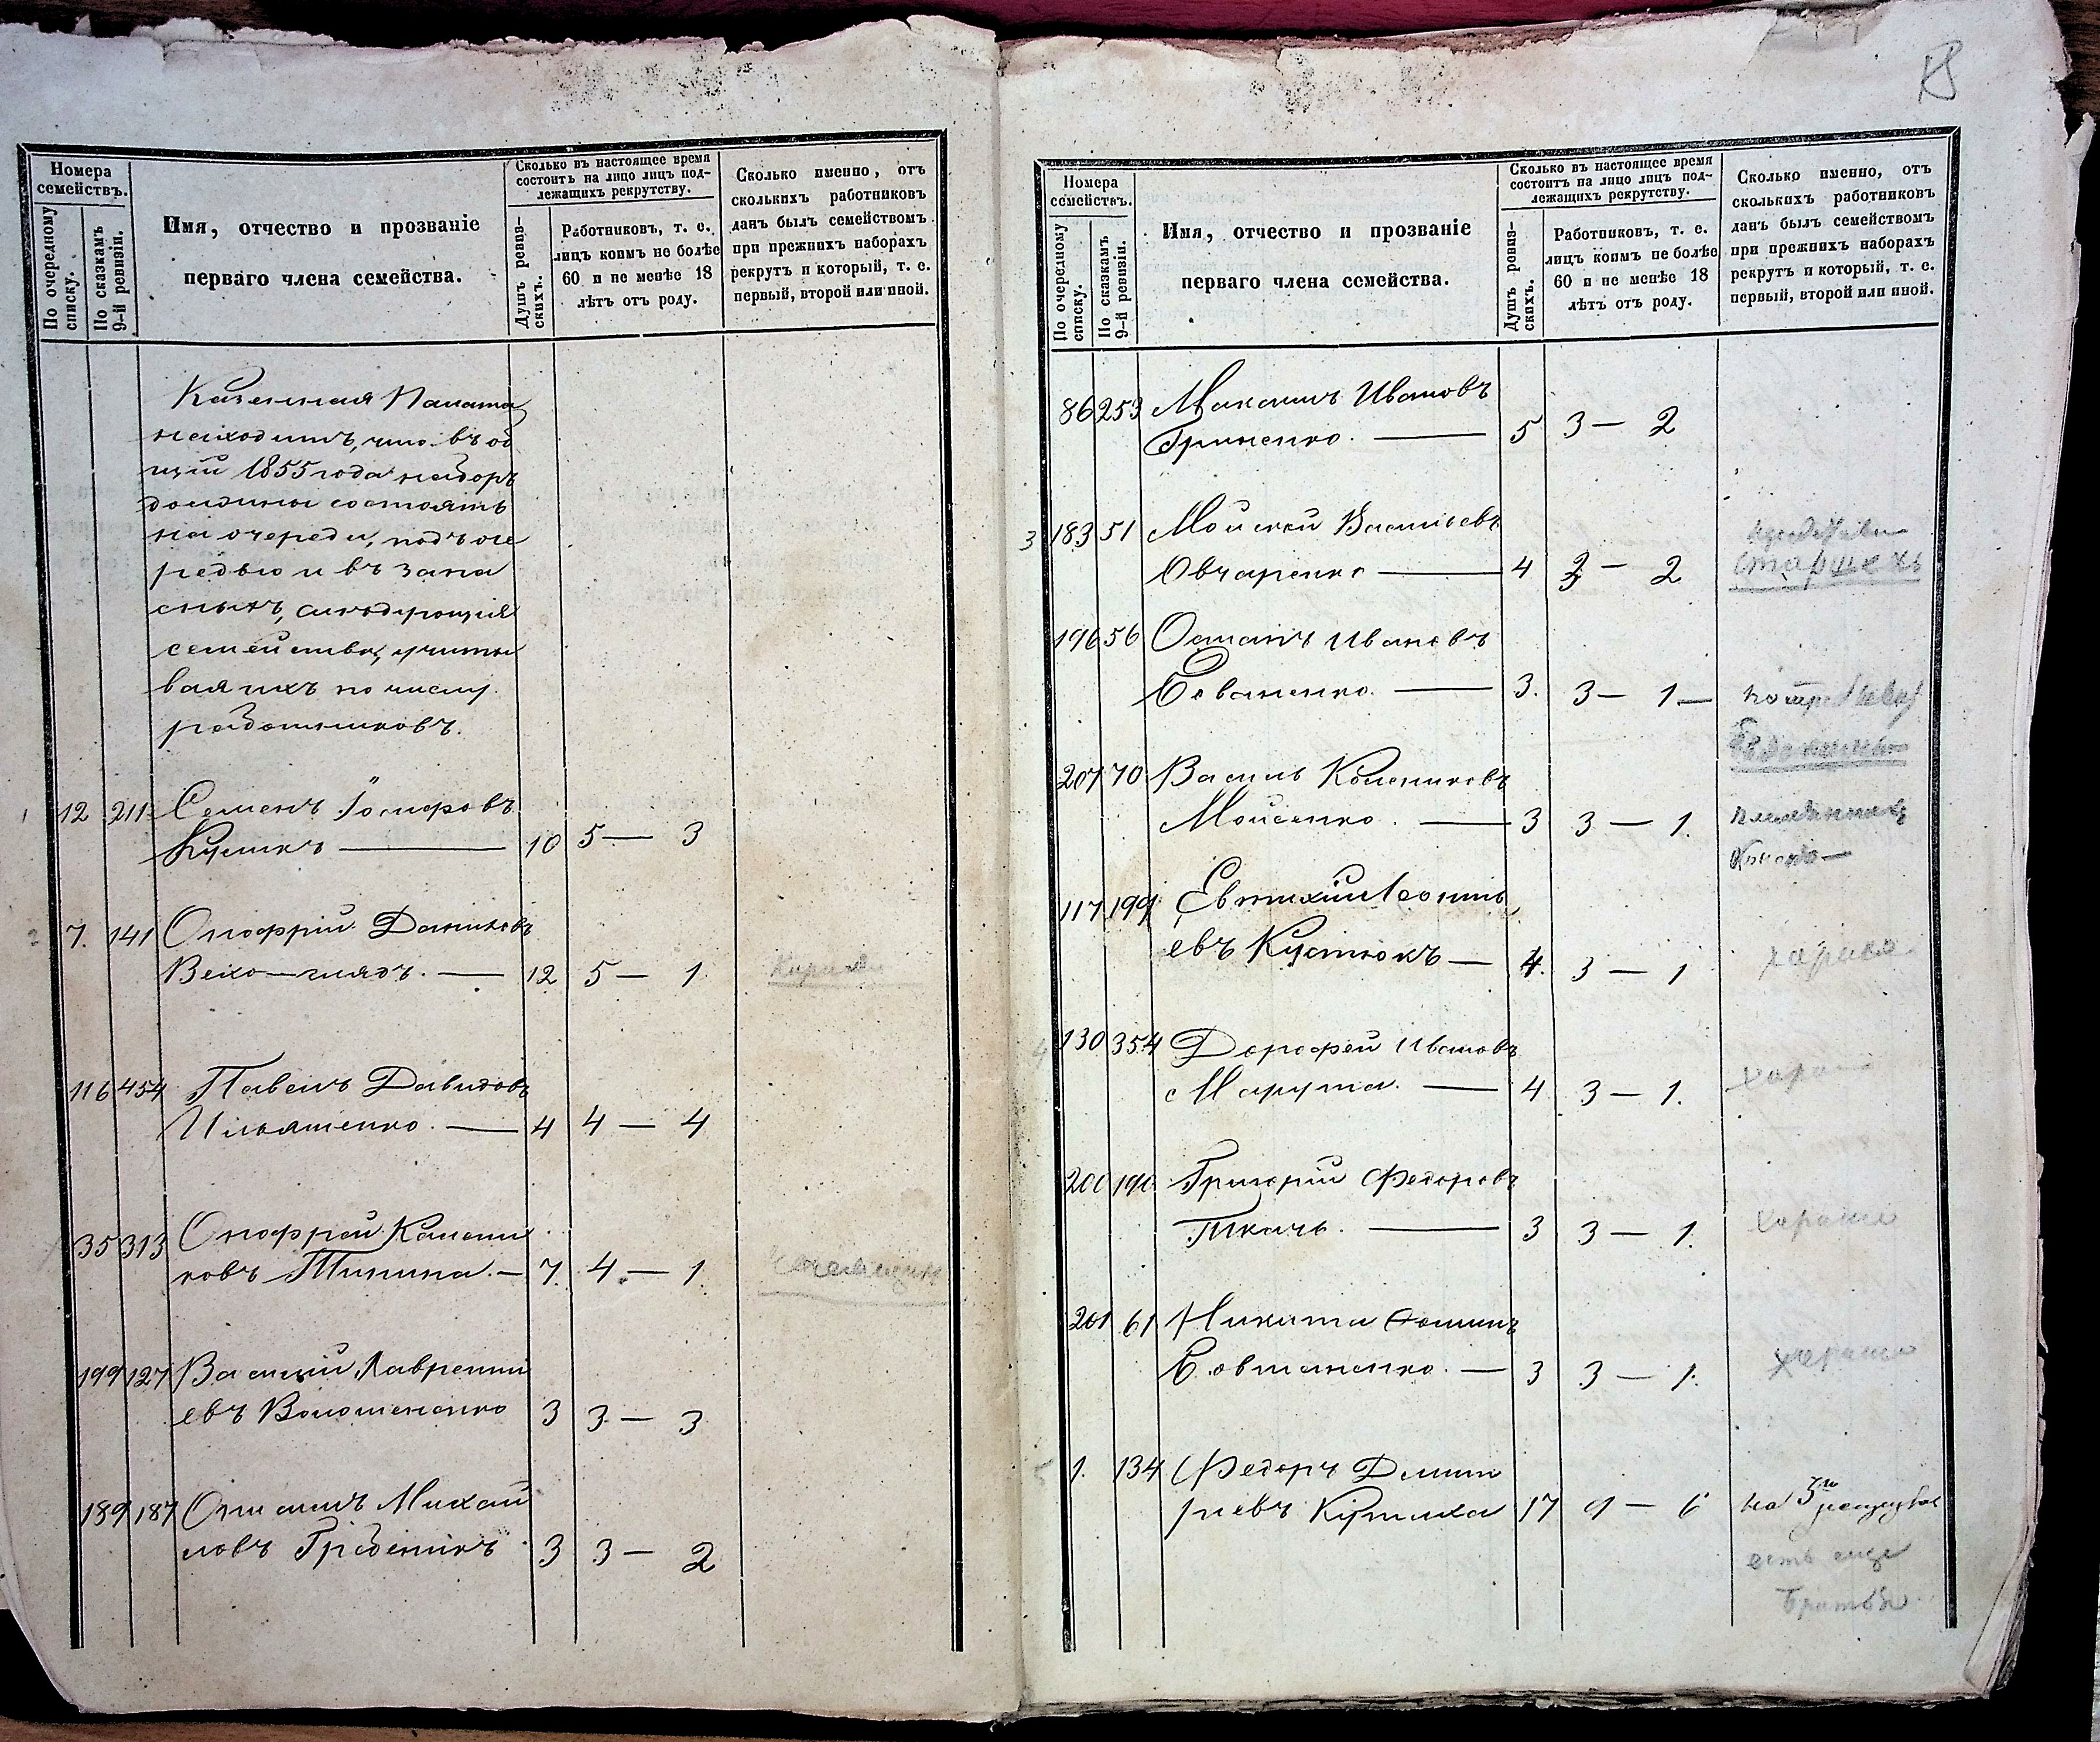 Номера семействъ.
По очередному списку.
По сказкамъ 9-й ревизіи.
Имя, отчество и прозваніе
перваго члена семейства.
Сколько въ настоящее время
состоитъ на лицо лицъ под-
лежащихъ рекрутству.
Душъ ревиз-
скихъ.
Работниковъ, т. е.
лицъ коимъ не болѣе
60 и не менѣе 18
лѣтъ отъ роду.
Сколько именно, отъ
сколькихъ работниковъ
данъ былъ семействомъ
при прежнихъ наборахъ
рекрутъ и который, т. е.
первый, второй или иной.
Казенная Палата
находитъ, что въ об
щій 1855 года наборъ
должны состоять
на очереди, подъ оче
редью и въ запа
сныхъ, слѣдующія
семейства, учиты
вая ихъ по числу
работниковъ.
1 12 211 Семенъ Іосифовъ
Кулик 10 5 — 3
2 7. 141 Онофрій Даниловъ
12 5 — 1
116 454 Павелъ Давидовъ
Ильяшенко. 4 4 — 4
35 313 Онофрей Калени
ковъ Типипа. — 7. 4. — 1.
199 127 Василій Лаврентий
евъ Волошененко 3 3 — 3
189 187 Михай
ловъ Гребеникъ 3 3 — 2
Номера
семействъ.
По очередному
списку.
По сказкамъ
9-й ревизіи.
Имя, отчество и прозваніе
перваго члена семейства.
Сколько въ настоящее время
состоитъ на лицо лицъ под-
лежащихъ рекрутству.
Душъ ревиз-
скихъ.
Работниковъ, т. е.
лицъ коимъ не болѣе
60 и не менѣе 18
лѣтъ отъ роду.
Сколько именно, отъ
сколькихъ работниковъ
данъ былъ семействомъ
при прежнихъ наборахъ
рекрутъ и который, т. е.
первый, второй или иной.
86 253 Ивановъ
Гриненко. 5 3 — 2
3 183 51 Мойсей Васильевъ
Овчаренко 4 3 — 2 старшехъ
196 56 Остапъ Ивановъ
3. 3 — 1 —
207 70 Василь Калениковъ
Мойсенко. 3 3 — 1.
117 199 Евтихій Леонть
евъ Кустюкъ — 4. 3 — 1
130 354 Дорофей Ивановъ
Марута. 4 3 — 1.
200 190 Григорій Федоровъ
Ткачь. 3 3 — 1. хорошо
201 61 Никита
Евтушенко. — 3 3 — 1. хорошо
1. 134 Федоръ Дмит
ріевъ 17 9 — 6 на 3
есть еще
братья